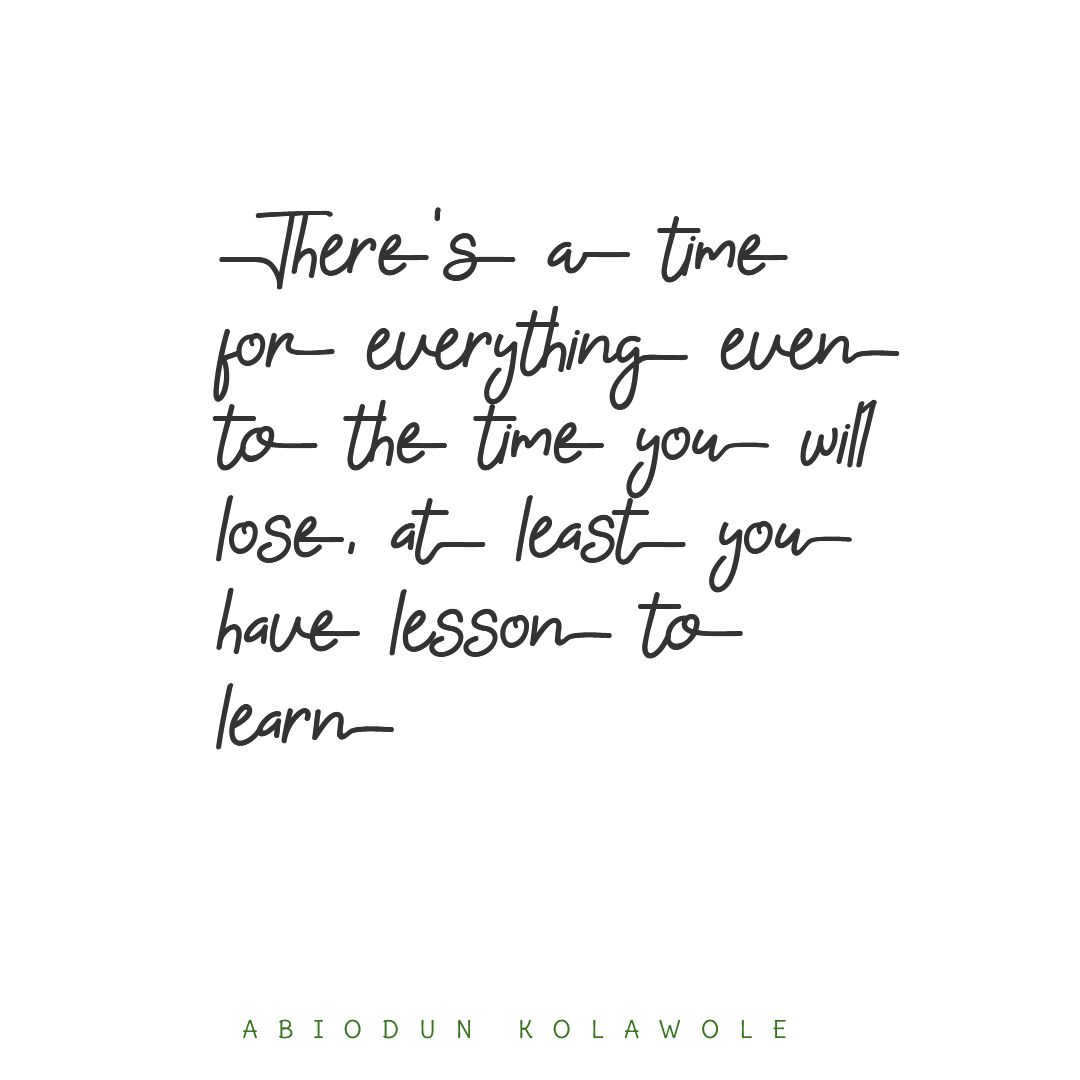 There's a time
for everything even
to the time you will
lose, at least you
have lesson to
learn
ABIODUN KOLAWOLE